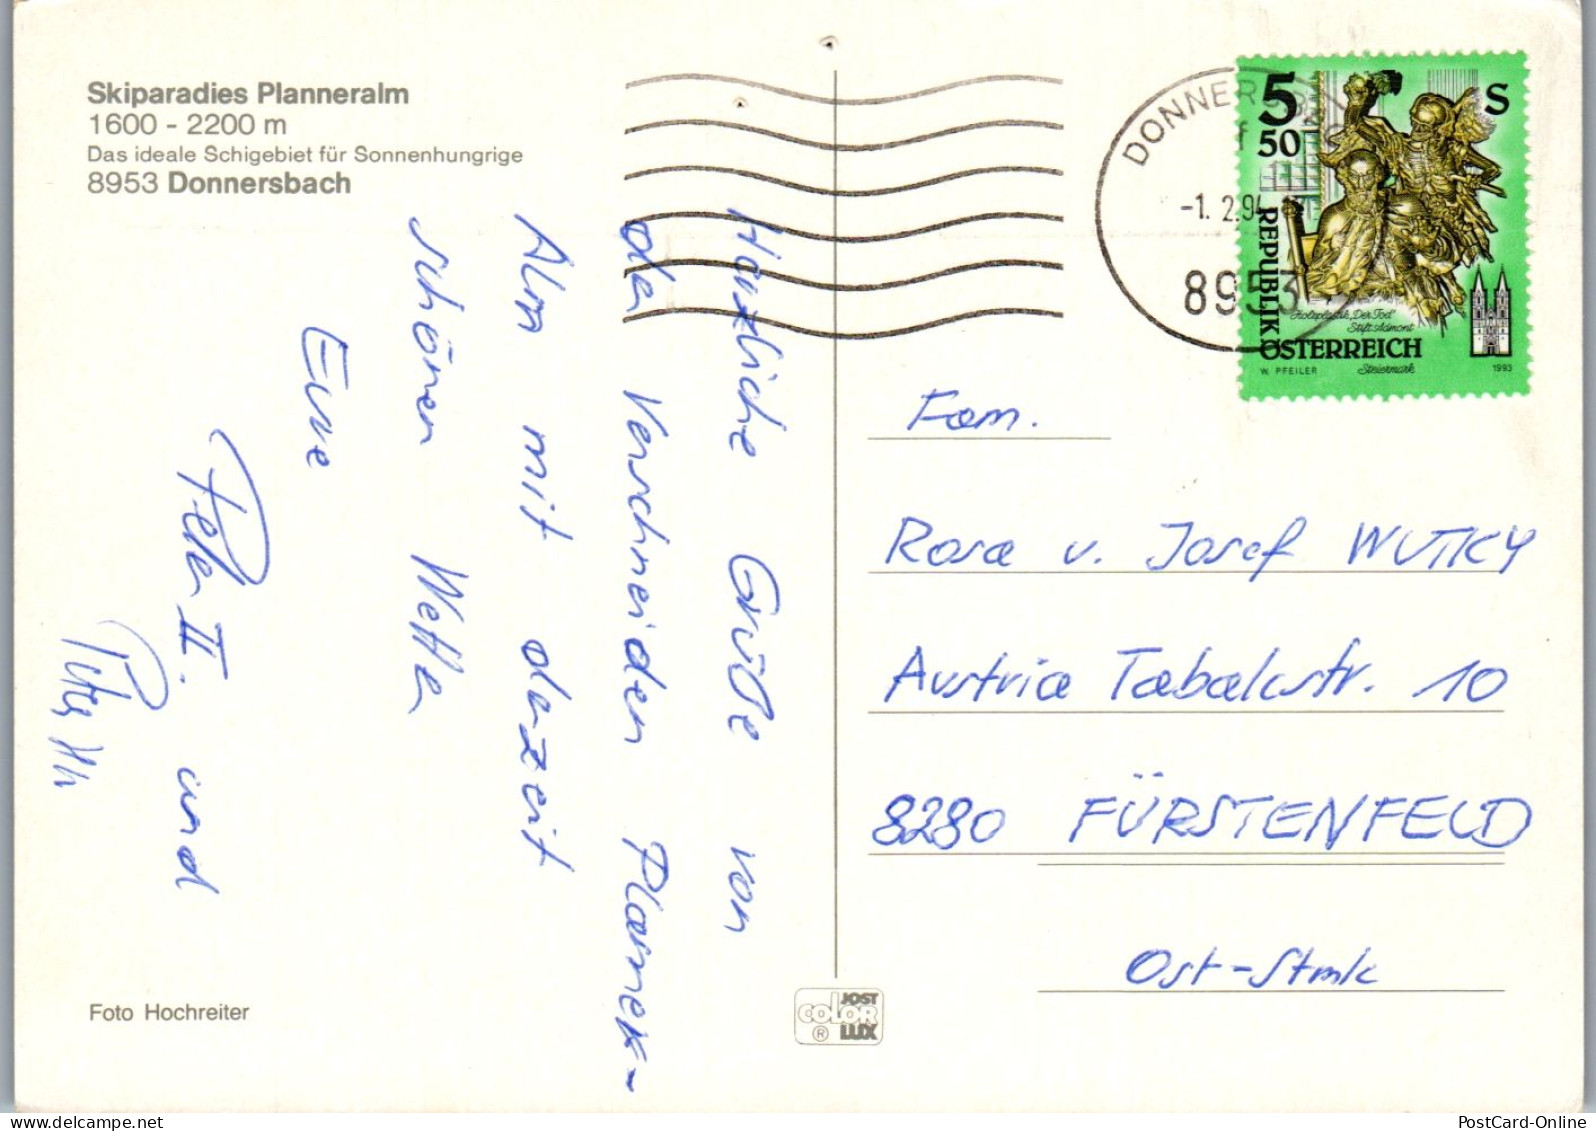 Skiparadies Planneralm
1600 - 2200 m
Das ideale Schigebiet für Sonnenhungrige
8953 Donnersbach
Herzliche Grüße von
der Verschneiden Planner-
Alm mit derzeit
schönen Wetter
Eure
Peter II. und
Foto Hochreiter
JOST
COLOR
® LUX
DONNERS
-1. 2.94
8953
5 S
50
REPUBLIK
Holzplastik „Der Tod"
Stift Admont
ÖSTERREICH
W. PFEILER Steiermark 1993
Fam.
Rosa u. Josef WUTKY
Austria Tabakstr. 10
8280 FÜRSTENFELD
Ost-Stmk
PostCard-Online